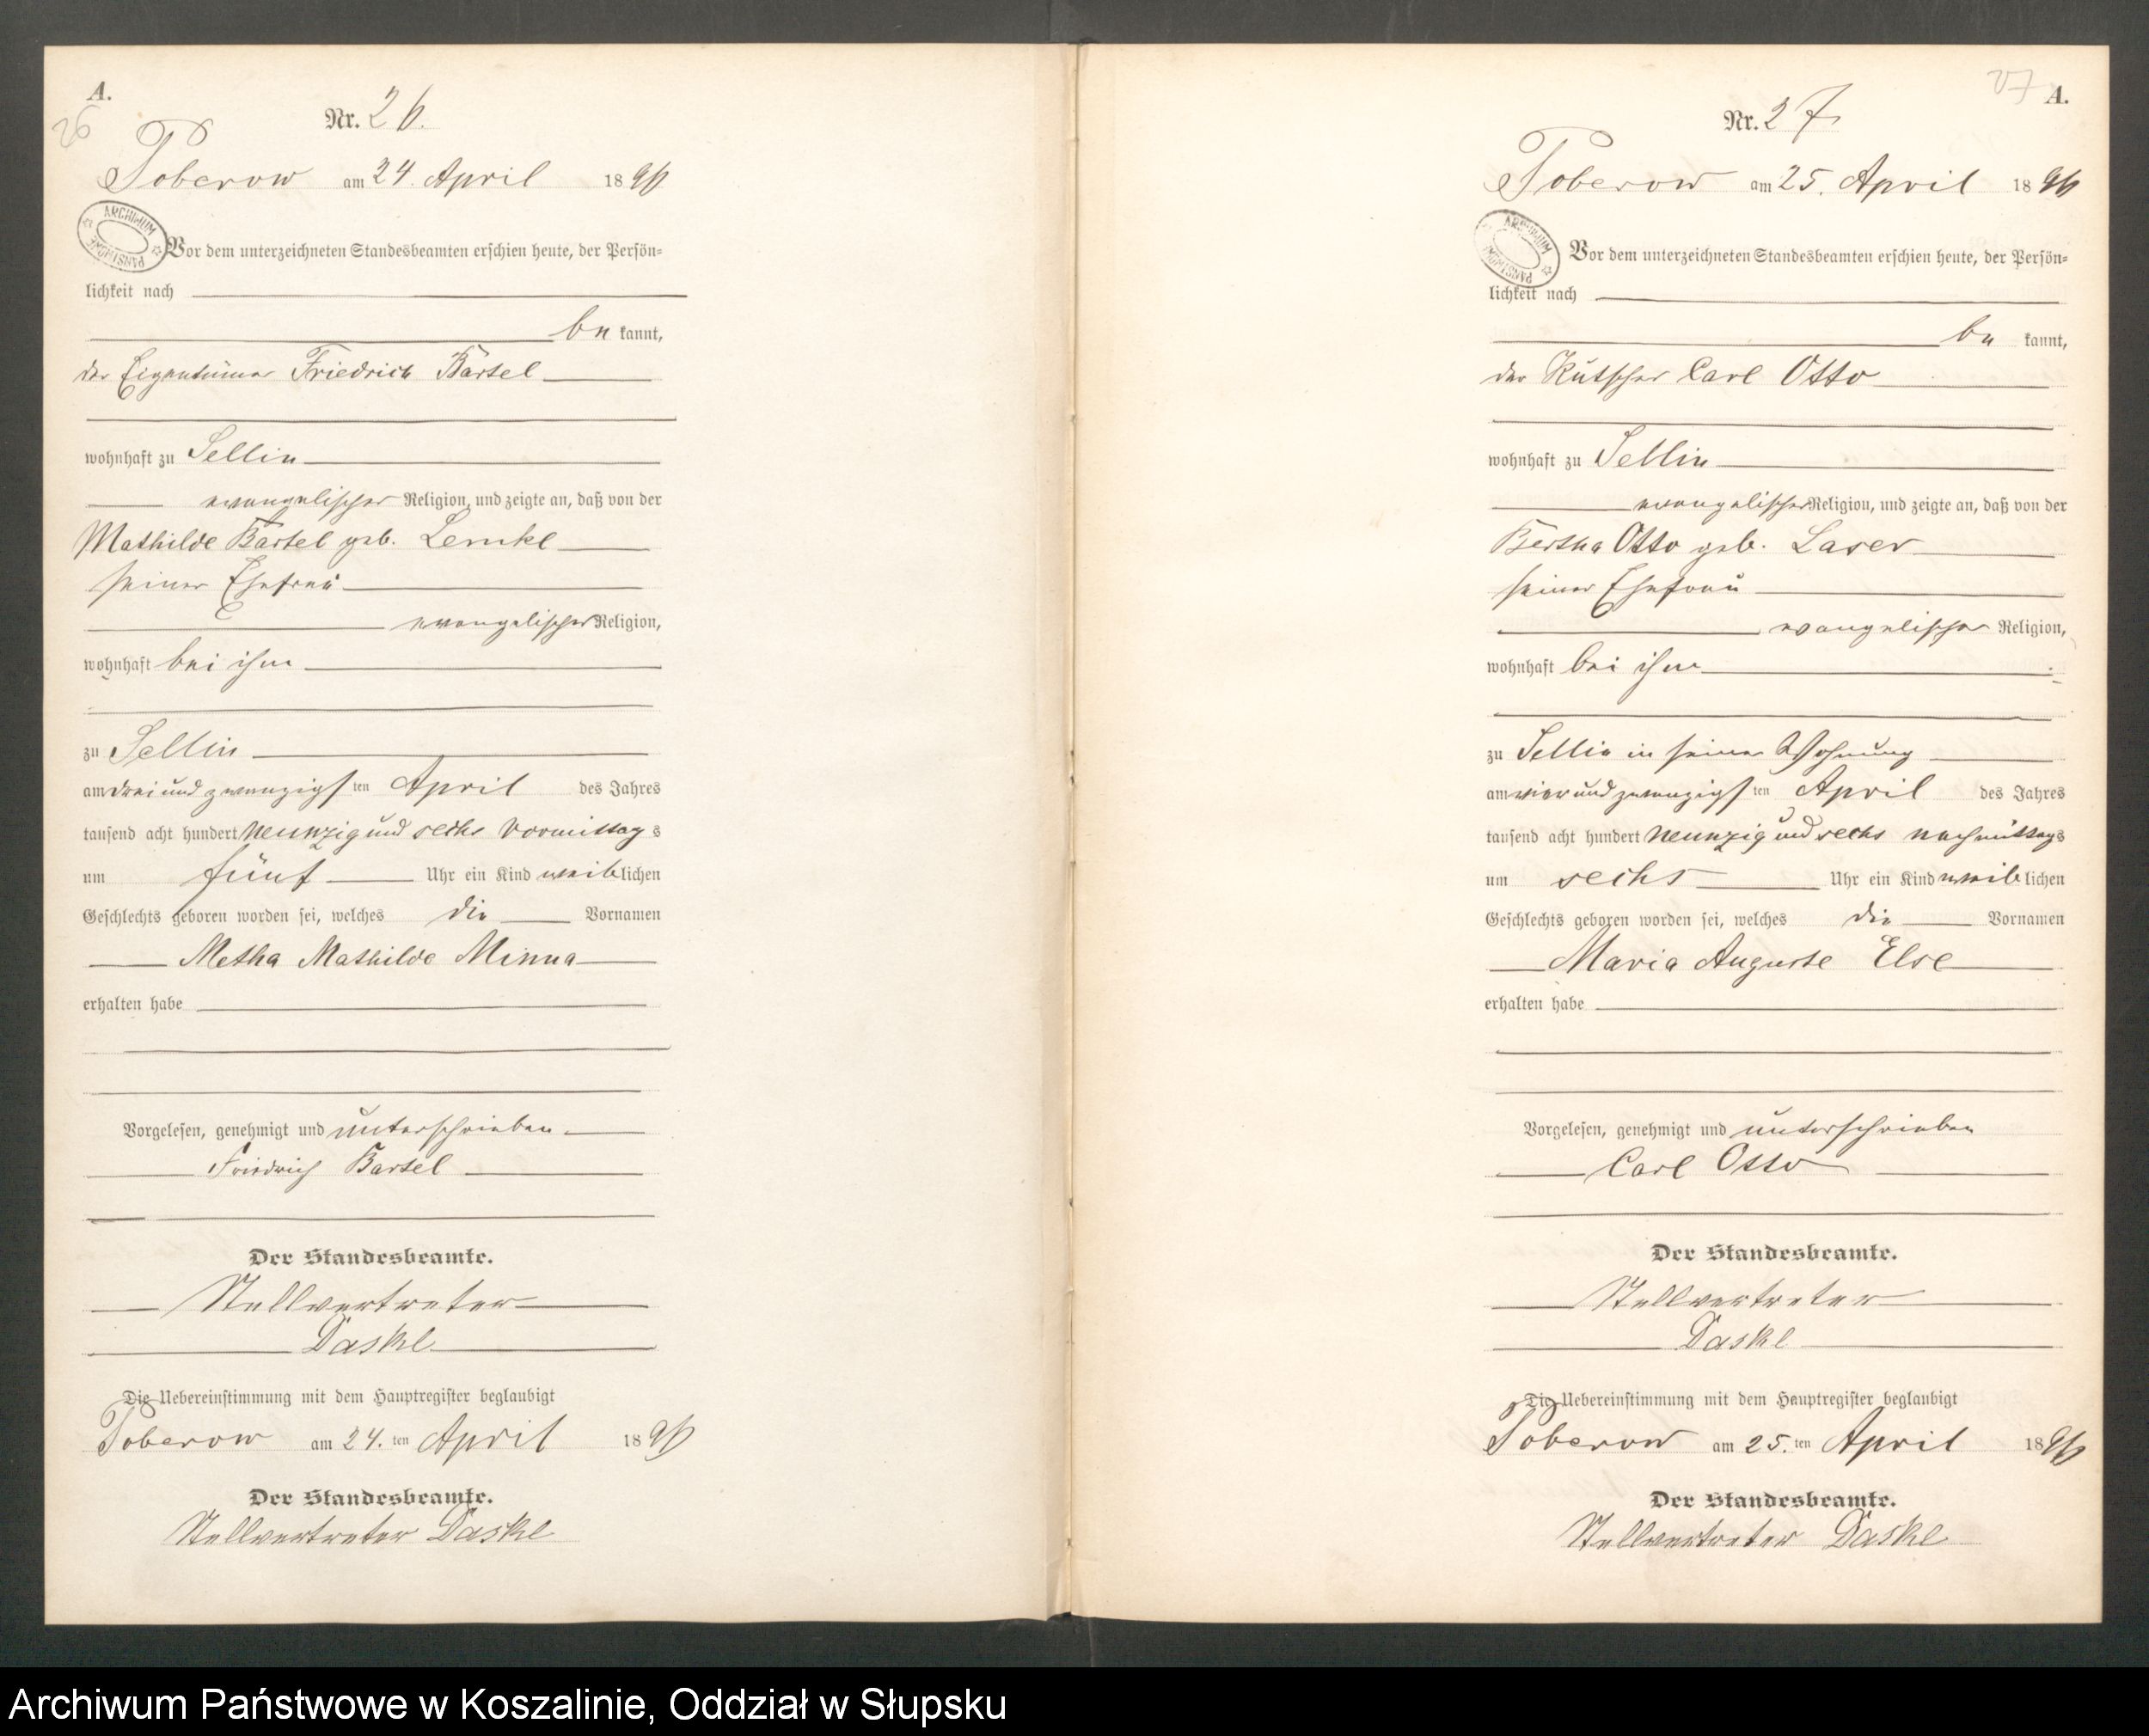 A.
26
Nr. 26.
Poberow am 24. April 1896
ARCHIWUM PAŃSTWOWE
Vor dem unterzeichneten Standesbeamten erschien heute, der Persön-
lichkeit nach
be kannt,
der Eigentümer Friedrich Bartel
wohnhaft zu Sellin
evangelischer Religion, und zeigte an, daß von der
Mathilde Bartel geb. Lemke
seiner Ehefrau
evangelischer Religion,
wohnhaft bei ihm
zu Sellin
am drei und zwanzigsten April des Jahres
tausend acht hundert neunzig und sechs Vormittags
um fünf Uhr ein Kind weiblichen
Geschlechts geboren worden sei, welches die Vornamen
Metha Mathilde Minna
erhalten habe
Vorgelesen, genehmigt und unterschrieben
Friedrich Bartel
Der Standesbeamte.
Stellvertreter
Daske
Die Uebereinstimmung mit dem Hauptregister beglaubigt
Poberow am 24. ten April 1896
Der Standesbeamte.
Stellvertreter Daske
27
A.
Nr. 27
Poberow am 25. April 1896
ARCHIWUM PAŃSTWOWE
Vor dem unterzeichneten Standesbeamten erschien heute, der Persön-
lichkeit nach
be kannt,
der Kutscher Carl Otto
wohnhaft zu Sellin
evangelischer Religion, und zeigte an, daß von der
Bertha Otto geb. Laser
seiner Ehefrau
evangelischer Religion,
wohnhaft bei ihm
zu Sellin in seiner Wohnung
am vier und zwanzigsten April des Jahres
tausend acht hundert neunzig und sechs nachmittags
um sechs Uhr ein Kind weiblichen
Geschlechts geboren worden sei, welches die Vornamen
Maria Auguste Else
erhalten habe
Vorgelesen, genehmigt und unterschrieben
Carl Otto
Der Standesbeamte.
Stellvertreter
Daske
Die Uebereinstimmung mit dem Hauptregister beglaubigt
Poberow am 25. ten April 1896
Der Standesbeamte.
Stellvertreter Daske
Archiwum Państwowe w Koszalinie, Oddział w Słupsku